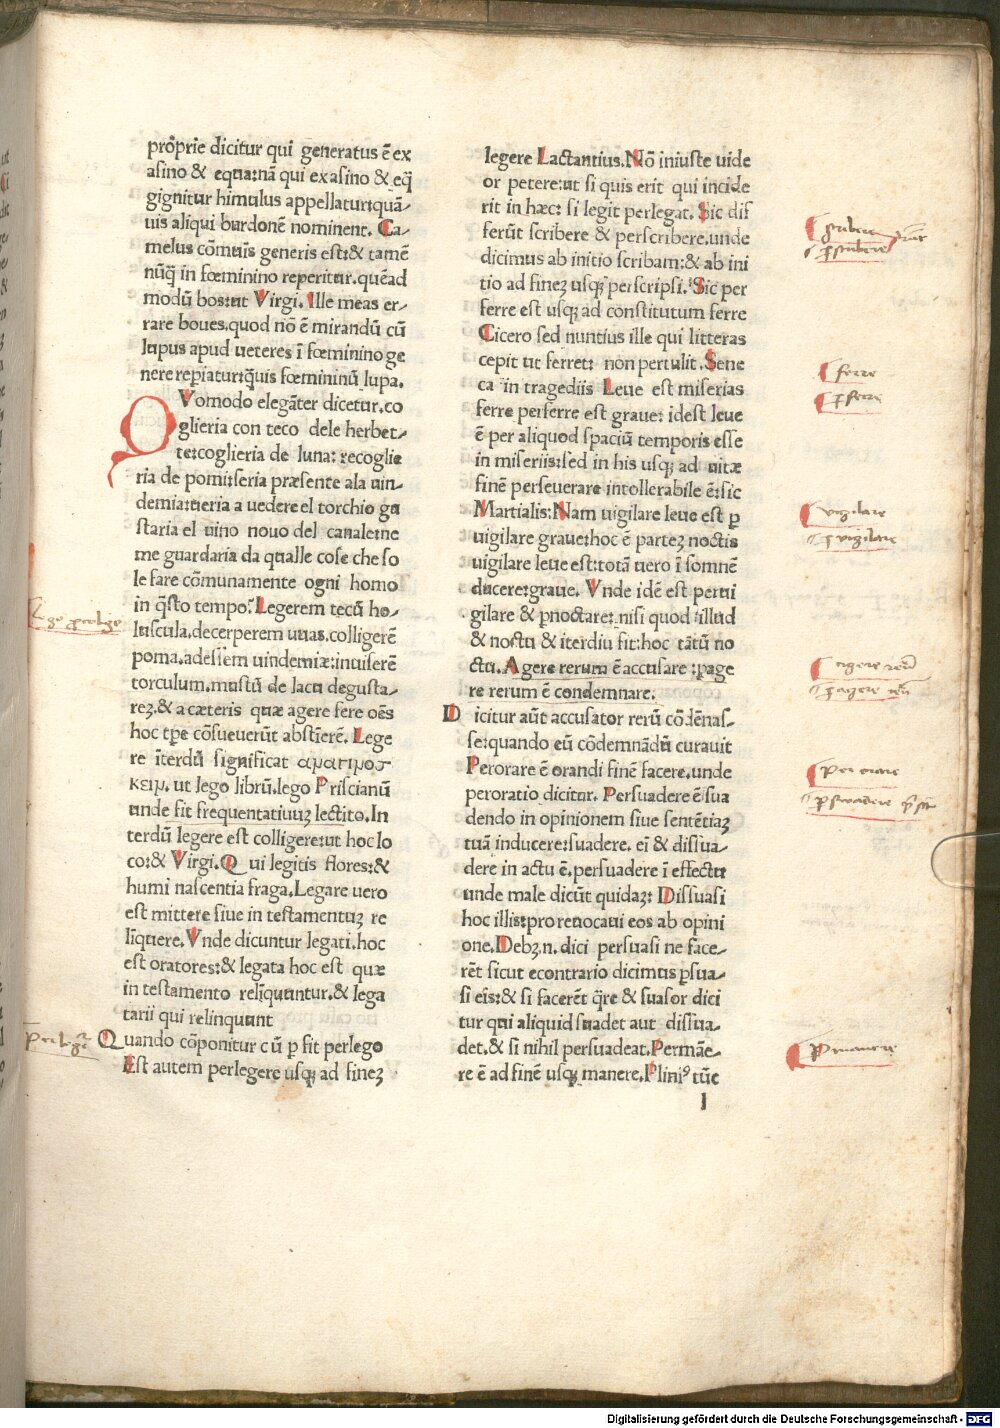 prōprie dicitur qui generatus ē ex
asino & equa:nā qui ex asino & eq̄
gignitur himulus appellatur:quā-
uis aliqui burdonē nominent. Ca-
melus cōmuis generis est:& tamē
nūq̄ in fœminino reperitur. quēad
modū bos:ut Virgi. Ille meas er-
rare boues.quod nō ē mirandū cū
lupus apud ueteres ī fœminino ge
nere repiatur:q̄uis fœmininū lupa.
QVomodo elegāter dicetur.co
glieria con teco dele herbet-
te:coglieria de luna: recoglie
ria de pomi:seria præsente ala uin-
demia:ueria a uedere el torchio gu
staria el uino nouo del canale:ne
me guardaria da qualle cose che so
le fare cōmunamente ogni homo
in q̄sto tempo. Legerem tecū ho-
luscula.decerperem uuas.colligerē
poma.adessem uindemiæ:inuiserē
torculum.mustū de lacu degusta-
reꝫ.& a cæteris quæ agere fere oēs
hoc tp̄e cōsueuerūt abstīerē. Lege
re īterdū significat αματιμοσ-
κειμ. ut lego librū.lego Priscianū
unde fit frequentatiuuꝫ lectito. In
terdū legere est colligere:ut hoc lo
co:& Virgi. Qui legitis flores:&
humi nascentia fraga. Legare uero
est mittere siue in testamentuꝫ re
līquere. Vnde dicuntur legati.hoc
est oratores:& legata hoc est quæ
in testamento relīquuntur.& lega
tarii qui relinquunt
Quando cōponitur cū p fit perlego
Est autem perlegere usqꝫ ad fineꝫ
legere Lactantius. Nō iniuste uide
or petere:ut si quis erit qui incide
rit in hæc: si legit perlegat. Sic dif
ferūt scribere & perscribere.unde
dicimus ab initio scribam:& ab ini
tio ad fineꝫ usqꝫ perscripsi. Sic per
ferre est usqꝫ ad constitutum ferre
Cicero sed nuntius ille qui litteras
cepit ut ferret: non pertulit. Sene
ca in tragediis Leue est miserias
ferre perferre est graue: idest leue
ē per aliquod spaciū temporis esse
in miseriis:sed in his usqꝫ ad uitæ
finē perseuerare intollerabile ē:sic
Martialis: Nam uigilare leue est p
uigilare graue:hoc ē parteꝫ noctis
uigilare leue est:totā uero ī somnē
ducere:graue. Vnde idē est perui
gilare & pnoctare: nisi quod illud
& noctu & iterdiu fit:hoc tātū no
ctu. Agere rerum ē accusare :page
re rerum ē condemnare.
Dicitur aūt accusator rerū cōdēnas-
se:quando eū cōdemnādū curauit
Perorare ē orandi finē facere.unde
peroratio dicitur. Persuadere ē sua
dendo in opinionem siue sentētiaꝫ
tuā inducere:suadere. eī & dissua-
dere in actu ē.persuadere ī effectu
unde male dicūt quidaꝫ: Dissuasi
hoc illis:pro reuocaui eos ab opini
one. Debꝫ.n. dici persuasi ne face-
rēt sicut econtrario dicimus psua-
si eis:& si facerēt q̄re & suasor dici
tur qui aliquid suadet aut dissua-
det.& si nihil persuadeat. Permāe-
re ē ad finē usqꝫ manere. Pliniꝰ tūc
l
scribere
pscribere
ferre
pferre
vigilare
pvigilare
agere
pagere
per orare
psuadere
pmanere
Digitalisierung gefördert durch die Deutsche Forschungsgemeinschaft - DFG